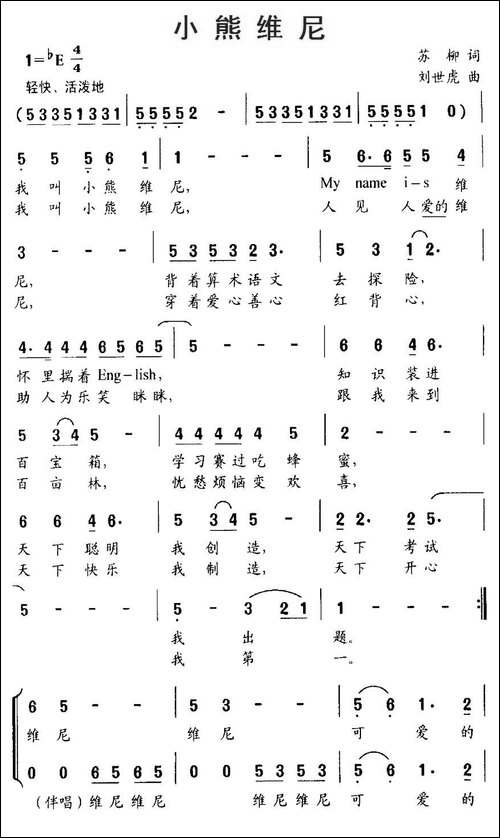 小熊维尼
1=♭E 4/4
苏柳词
刘世虎曲
轻快、活泼地
(5 3 3 5 1 3 3 1 | 5 5 5 5 5 2 - | 5 3 3 5 1 3 3 1 | 5 5 5 5 5 1 0)
5 5 5 6 1 | 1 - - - | 5 6·6 5 5 4
我叫小熊维尼, My name i-s 维
我叫小熊维尼, 人见人爱的维
3 - - - | 5 3 5 3 2 3· | 5 3 1 2·
尼, 背着算术语文 去探险,
尼, 穿着爱心善心 红背心,
4· 4 4 4 6 5 6 5 | 5 - - - | 6 6 4 6·
怀里揣着Eng-lish, 知识装进
助人为乐笑眯眯, 跟我来到
5 3 4 5 - | 4 4 4 4 4 5 | 2 - - -
百宝箱, 学习赛过吃蜂蜜,
百亩林, 忧愁烦恼变欢喜,
6 6 4 6· | 5 3 4 5 - | 2 2 2 5·
天下聪明 我创造, 天下考试
天下快乐 我制造, 天下开心
5 - - - | 5 - 3 2 1 | 1 - - - :‖
我出题。
我第一。
6 5 - - | 5 3 - - | 5 6 1· 2
维尼 维尼 可爱的
0 0 6 5 6 5 | 0 0 5 3 5 3 | 5 6 1· 2
(伴唱)维尼维尼 维尼维尼 可爱的